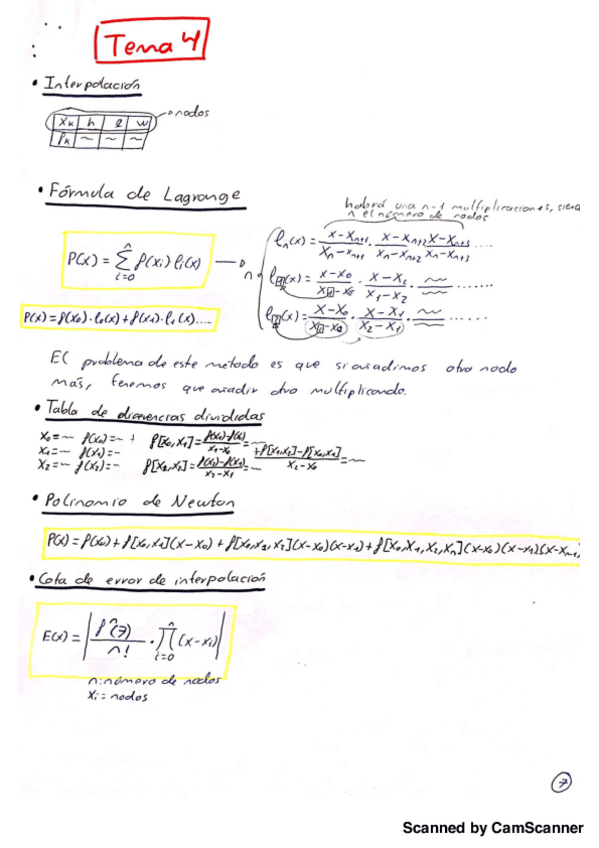 Tema 4
• Interpolación
xk h l w → nodos
fk ~ ~ ~
• Fórmula de Lagrange
habrá una n-1 multiplicaciones, siend
n el número de nodos
P(x) = Σ_{i=0}^{n} f(xi) li(x)
ln(x) = (x-xn+1)/(xn-xn+1) · (x-xn+2)/(xn-xn+2) (x-xn+3)/(xn-xn+3) ....
l1(x) = (x-x0)/(x1-x0) · (x-x2)/(x1-x2) · ~/~ .......
l2(x) = (x-x0)/(x2-x0) · (x-x1)/(x2-x1) · ~/~ ......
P(x) = f(x0)·l0(x) + f(x1)·l1(x)....
El problema de este método es que si añadimos otro nodo
más, tenemos que añadir otro multiplicando.
• Tabla de diferencias divididas
x0 = ~ f(x0) = ~ + f[x0,x1] = (f(x1)-f(x0))/(x1-x0) = ~
x1 = ~ f(x1) = ~ + (f[x1,x2]-f[x0,x1])/(x2-x0) = ~
x2 = ~ f(x2) = ~ f[x1,x2] = (f(x2)-f(x1))/(x2-x1) = ~
• Polinomio de Newton
P(x) = f(x0) + f[x0,x1](x-x0) + f[x0,x1,x2](x-x0)(x-x1) + f[x0,x1,x2,xn](x-x0)(x-x1)(x-xn-1)
• Cota de error de interpolación
E(x) = | f^n(ξ)/n! · ∏_{i=0}^{n} (x-xi) |
n: número de nodos
xi = nodos
7
Scanned by CamScanner